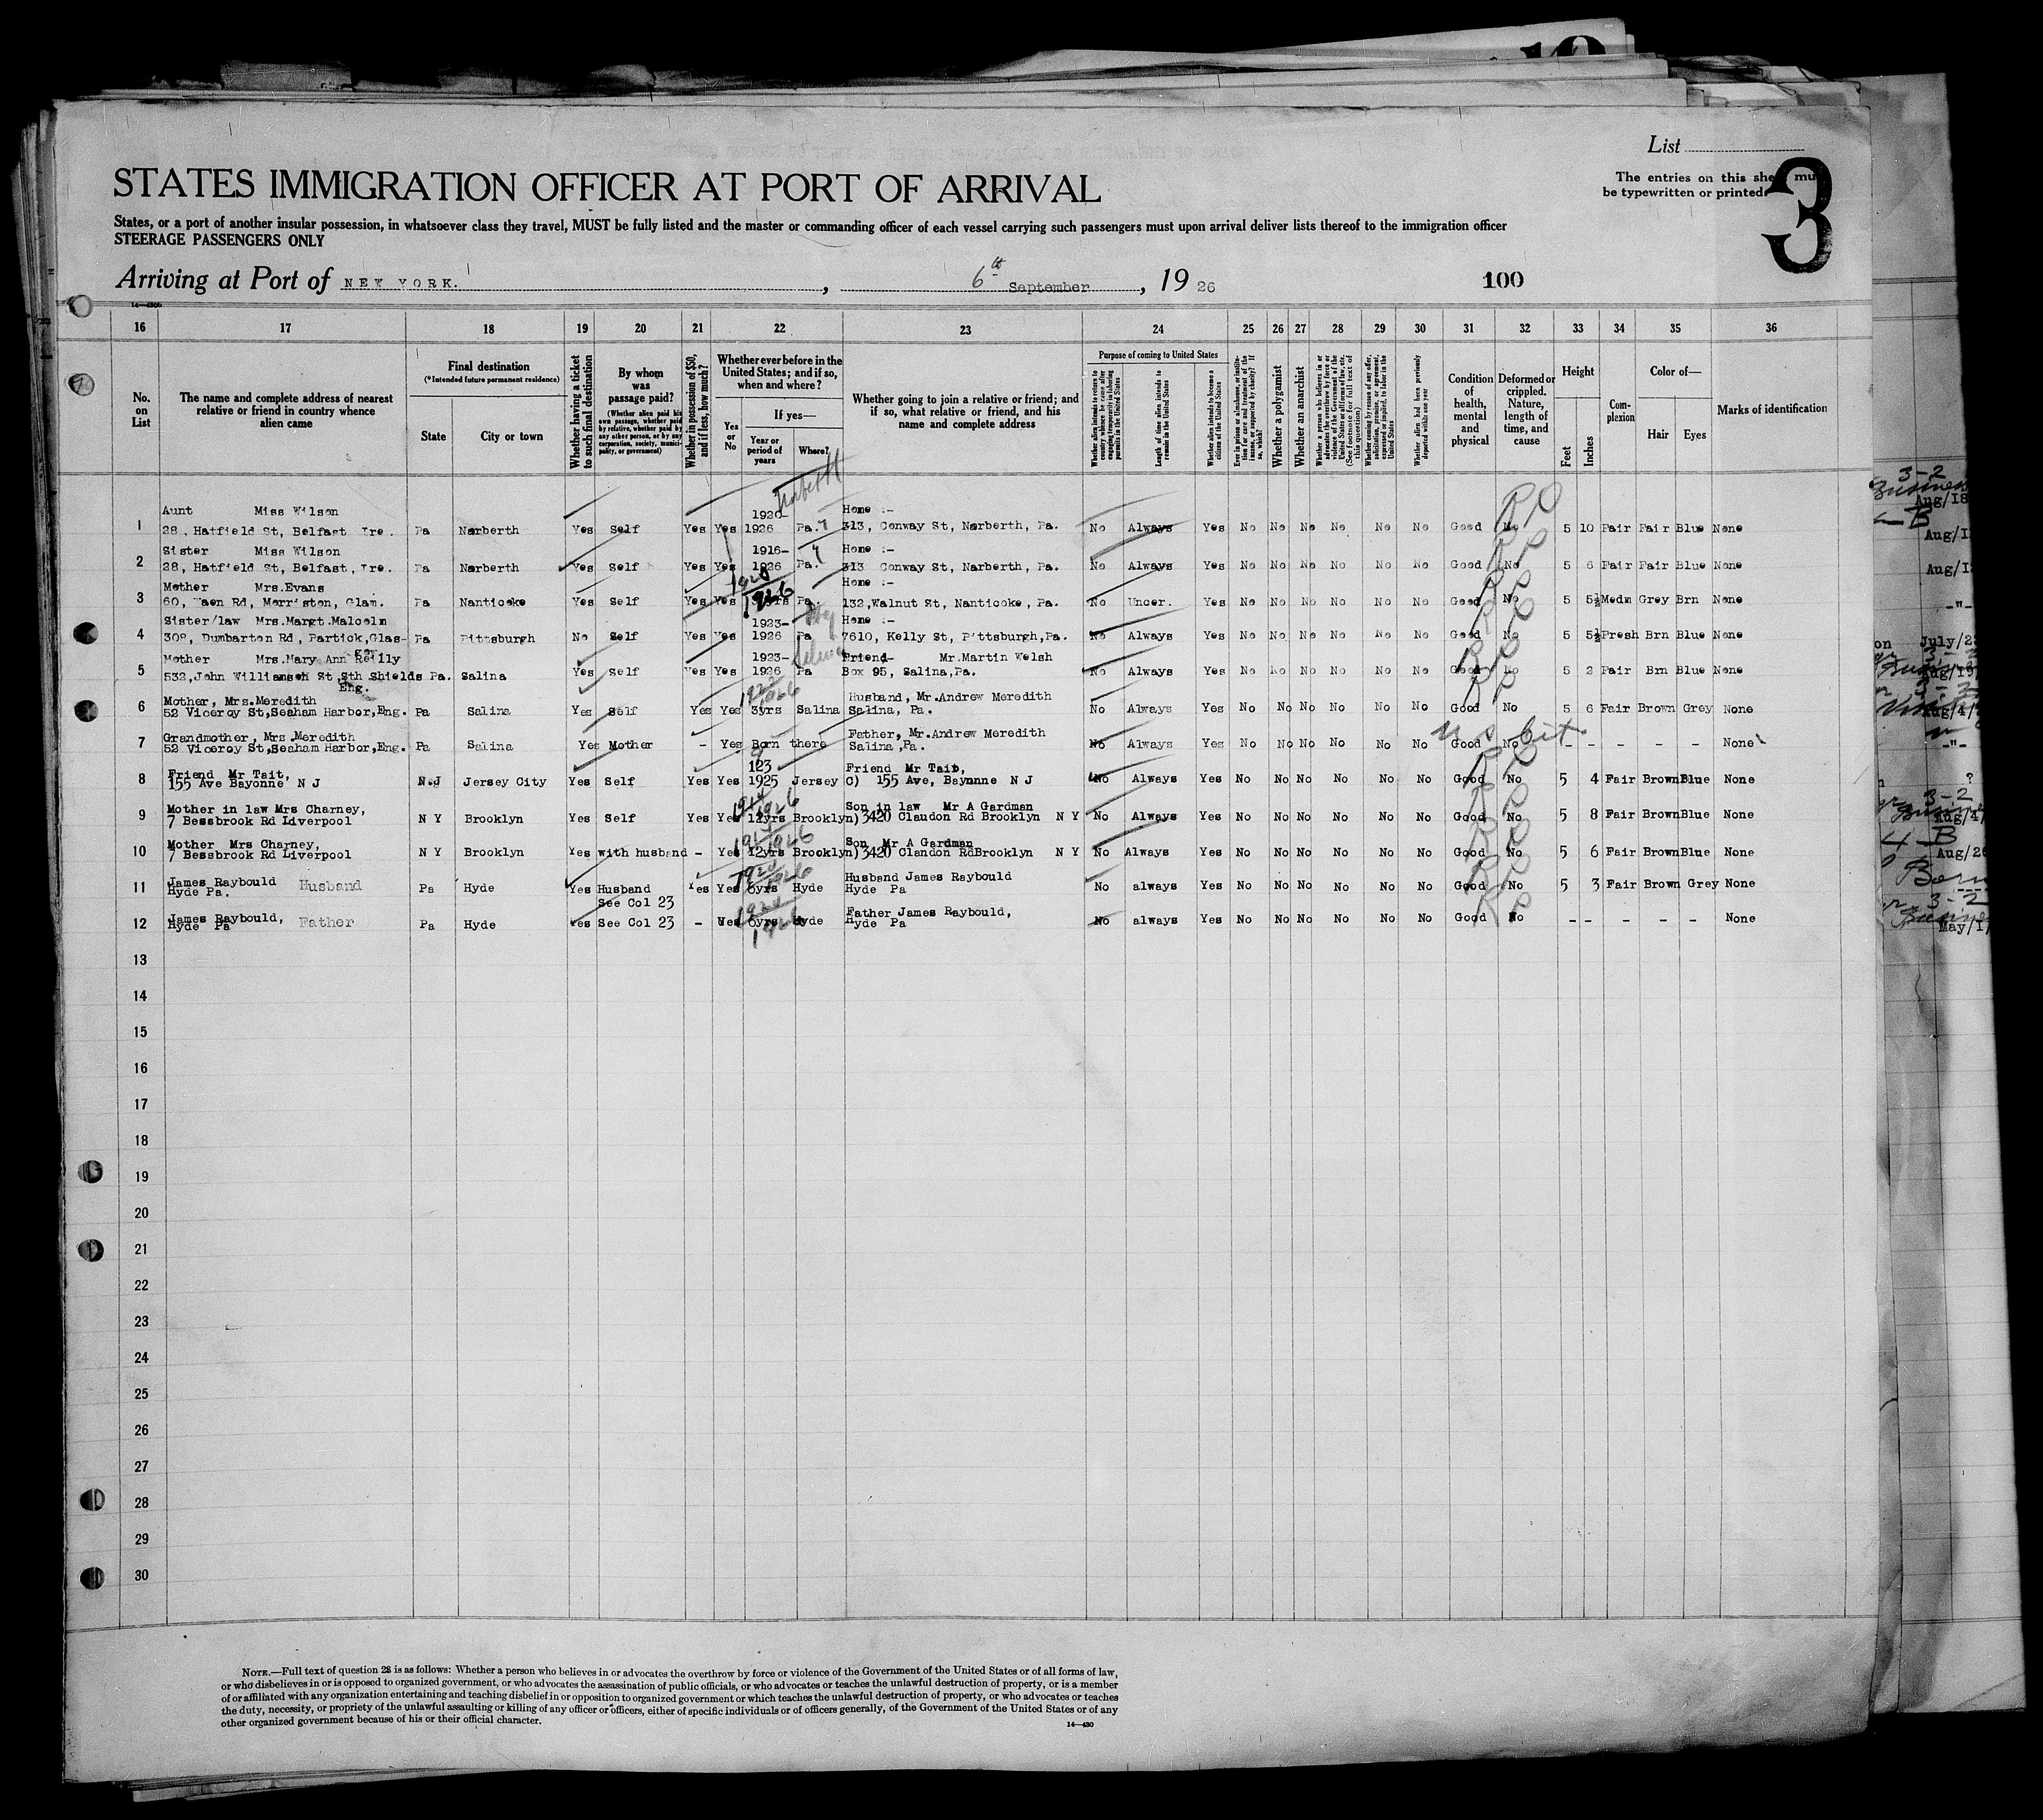 List
The entries on this she mu
be typewritten or printed
3
STATES IMMIGRATION OFFICER AT PORT OF ARRIVAL
States, or a port of another insular possession, in whatsoever class they travel, MUST be fully listed and the master or commanding officer of each vessel carrying such passengers must upon arrival deliver lists thereof to the immigration officer
STEERAGE PASSENGERS ONLY
Arriving at Port of NEW YORK. , 6th September , 19 26
100
16 17 18 19 20 21 22 23 24 25 26 27 28 29 30 31 32 33 34 35 36
No. on List
The name and complete address of nearest relative or friend in country whence alien came
Final destination
(*Intended future permanent residence)
State
City or town
Whether having a ticket to such final destination
By whom was passage paid?
(Whether alien paid his own passage, whether paid by relative, whether paid by any other person, or by any corporation, society, municipality, or government)
Whether in possession of $50, and if less, how much?
Whether ever before in the United States; and if so, when and where?
Yes or No
If yes—
Year or period of years
Where?
Whether going to join a relative or friend; and if so, what relative or friend, and his name and complete address
Purpose of coming to United States
Whether alien intends to return to country whence he came after engaging temporarily in laboring pursuits in the United States
Length of time alien intends to remain in the United States
Whether alien intends to become a citizen of the United States
Ever in prison or almshouse, or institution for care and treatment of the insane, or supported by charity? If so, which?
Whether a polygamist
Whether an anarchist
Whether a person who believes in or advocates the overthrow by force or violence of the Government of the United States or all forms of law, etc. (See footnote for full text of this question)
Whether coming by reason of any offer, solicitation, promise, or agreement, expressed or implied, to labor in the United States
Whether alien had been previously deported within one year
Condition of health, mental and physical
Deformed or crippled. Nature, length of time, and cause
Height
Feet
Inches
Complexion
Color of—
Hair
Eyes
Marks of identification
Aunt Miss Wilson 1920- Home :-
1 28, Hatfield St, Belfast Ire. Pa Narberth Yes Self Yes Yes 1926 Pa. 313, Conway St, Narberth, Pa. No Always Yes No No No No No No Good No 5 10 Fair Fair Blue None
Sister Miss Wilson 1916- Home :-
2 28, Hatfield St, Belfast, Ire. Pa Narberth Yes Self Yes Yes 1926 Pa. 313 Conway St, Narberth, Pa. No Always Yes No No No No No No Good No 5 6 Fair Fair Blue None
Mother Mrs.Evans 1920 1926 Home :-
3 60, Waen Rd, Morriston, Glam. Pa Nanticoke Yes Self Yes Yes Pa. 132,Walnut St, Nanticoke, Pa. No Uncer. Yes No No No No No No Good No 5 5½ Medm Grey Brn None
Sister/law Mrs.Margt.Malcolm 1923- Home :-
4 308, Dumbarton Rd, Partick,Glas- Pa Pittsburgh No Self Yes Yes 1926 Pa 7610, Kelly St, Pittsburgh,Pa. No Always Yes No No No No No No Good No 5 5½ Fresh Brn Blue None
gow
Mother Mrs.Mary Ann Reilly 1923- Friend- Mr.Martin Welsh
5 532,John Williamson St,Sth Shields Pa. Salina Yes Self Yes Yes 1926 Pa Box 95, Salina,Pa. No Always Yes No No No No No No Good No 5 2 Fair Brn Blue None
Eng.
Mother, Mrs.Meredith 1926 Husband, Mr.Andrew Meredith
6 52 Viceroy St,Seaham Harbor,Eng. Pa Salina Yes Self Yes Yes 3yrs Salina Salina, Pa. No Always Yes No No No No No No Good No 5 6 Fair Brown Grey None
Grandmother, Mrs Meredith Father, Mr.Andrew Meredith U S Cit.
7 52 Viceroy St,Seaham Harbor,Eng. Pa Salina Yes Mother - Yes Born there Salina,Pa. No Always Yes No No No No No No Good No - - - - - None
Friend Mr Tait, 123 Friend Mr Tait,
8 155 Ave Bayonne N J N.J Jersey City Yes Self Yes Yes 1925 Jersey C) 155 Ave, Baynnne N J No Always Yes No No No No No No Good No 5 4 Fair Brown Blue None
Mother in law Mrs Charney, 1914 1926 Son in law Mr A Gardman
9 7 Bessbrook Rd Liverpool N Y Brooklyn Yes Self Yes Yes 12yrs Brooklyn) 3420 Claudon Rd Brooklyn N Y No Always Yes No No No No No No Good No 5 8 Fair Brown Blue None
Mother Mrs Charney, 1926 Son Mr A Gardman
10 7 Bessbrook Rd Liverpool N Y Brooklyn Yes with husband - Yes 12yrs Brooklyn) 3420 Clandon RdBrooklyn N Y No Always Yes No No No No No No Good No 5 6 Fair Brown Blue None
James Raybould Husband 1920 1926 Husband James Raybould
11 Hyde Pa. Pa Hyde Yes Husband Yes Yes 6yrs Hyde Hyde Pa No always Yes No No No No No No Good No 5 3 Fair Brown Grey None
See Col 23
James Raybould, Father Father James Raybould,
12 Hyde Pa Pa Hyde Yes See Col 23 - Yes 6yrs Hyde Hyde Pa No always Yes No No No No No No Good No - - - - - None
1926
13
14
15
16
17
18
19
20
21
22
23
24
25
26
27
28
29
30
NOTE.—Full text of question 28 is as follows: Whether a person who believes in or advocates the overthrow by force or violence of the Government of the United States or of all forms of law,
or who disbelieves in or is opposed to organized government, or who advocates the assassination of public officials, or who advocates or teaches the unlawful destruction of property, or is a member
of or affiliated with any organization entertaining and teaching disbelief in or opposition to organized government or which teaches the unlawful destruction of property, or who advocates or teaches
the duty, necessity, or propriety of the unlawful assaulting or killing of any officer or officers, either of specific individuals or of officers generally, of the Government of the United States or of any
other organized government because of his or their official character.
14—430